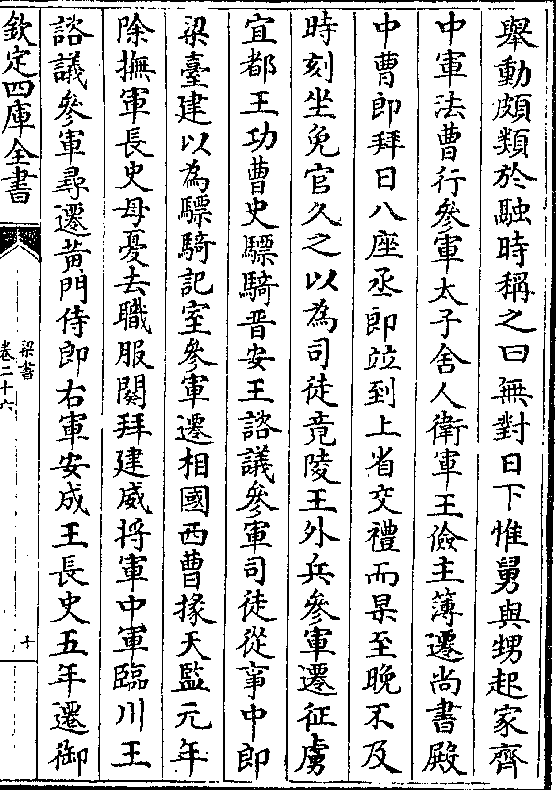 舉動頗類於融時稱之曰無對日下惟舅與甥起家齊
中軍法曹行參軍太子舍人衛軍王儉主薄遷尚書殿
中曹郎拜日八座丞郎竝到上省交禮而杲至晚不及
時刻坐免官久之以為司徒竟陵王外兵參軍遷征虜
宜都王功曹史驃騎晋安王諮議參軍司徒從事中郎
梁臺建以為驃騎記室參軍遷相國西曹掾天監元年
除撫軍長史母憂去職服闋拜建威將軍中軍臨川王
諮議參軍尋遷黃門侍郎右軍安成王長史五年遷御
欽定四庫全書
梁書
卷二十六
十